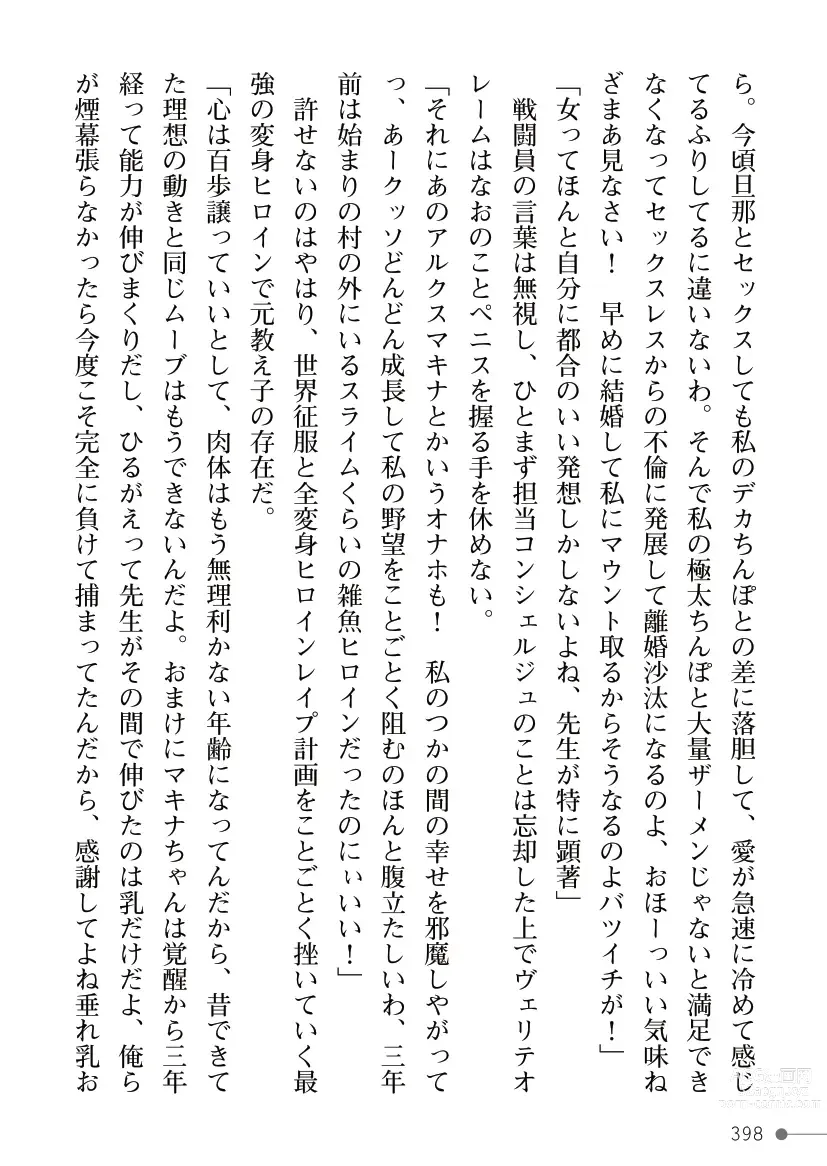 ら。今頃旦那とセックスしても私のデカちんぽとの差に落胆して、愛が急速に冷めて感じ
てるふりしてるに違いないわ。そんで私の極太ちんぽと大量ザーメンじゃないと満足でき
なくなってセックスレスからの不倫に発展して離婚沙汰になるのよ、おほーっいい気味ね
ざまあ見なさい！　早めに結婚して私にマウント取るからそうなるのよバツイチが！」
「女ってほんと自分に都合のいい発想しかしないよね、先生が特に顕著」
　戦闘員の言葉は無視し、ひとまず担当コンシェルジュのことは忘却した上でヴェリテオ
レームはなおのことペニスを握る手を休めない。
「それにあのアルクスマキナとかいうオナホも！　私のつかの間の幸せを邪魔しやがって
っ、あークッソどんどん成長して私の野望をことごとく阻むのほんと腹立たしいわ、三年
前は始まりの村の外にいるスライムくらいの雑魚ヒロインだったのにぃいい！」
　許せないのはやはり、世界征服と全変身ヒロインレイプ計画をことごとく挫いていく最
強の変身ヒロインで元教え子の存在だ。
「心は百歩譲っていいとして、肉体はもう無理利かない年齢になってんだから、昔できて
た理想の動きと同じムーブはもうできないんだよ。おまけにマキナちゃんは覚醒から三年
経って能力が伸びまくりだし、ひるがえって先生がその間で伸びたのは乳だけだよ、俺ら
が煙幕張らなかったら今度こそ完全に負けて捕まってたんだから、感謝してよね垂れ乳お
398